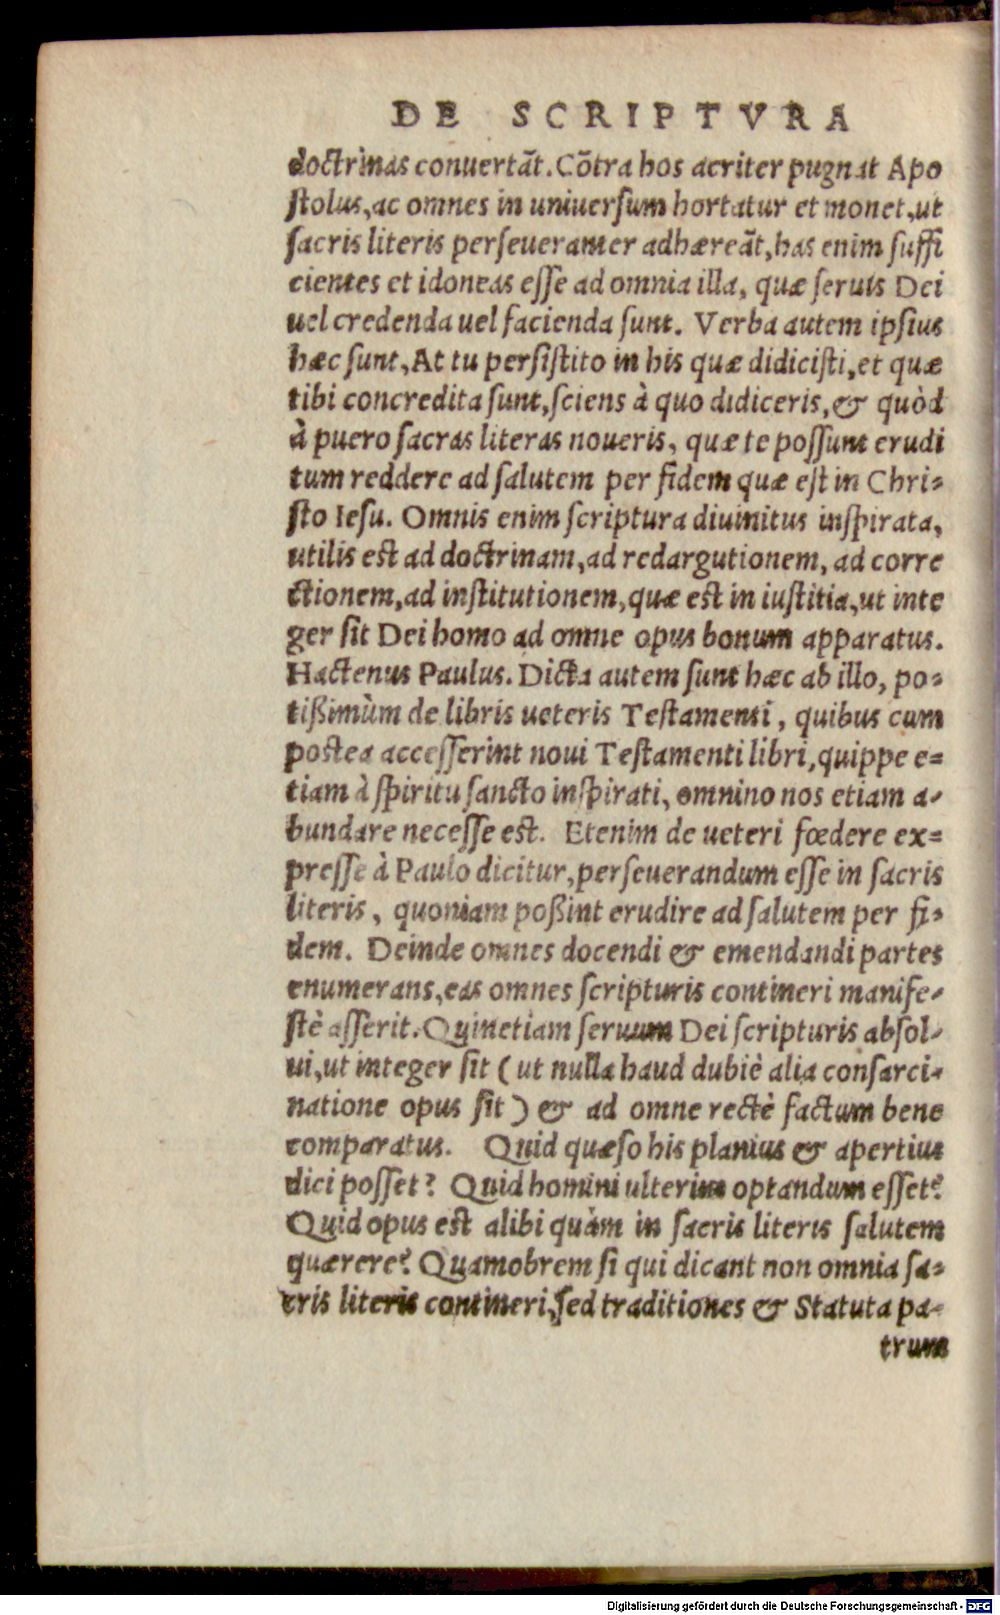 DE SCRIPTVRA
doctrinas conuertãt. Cõtra hos acriter pugnat Apo
ſtolus, ac omnes in uniuerſum hortatur et monet, ut
ſacris literis perſeueranter adhæreãt, has enim ſuffi
cientes et idoneas eſſe ad omnia illa, quæ ſeruis Dei
uel credenda uel facienda ſunt. Verba autem ipſius
hæc ſunt, At tu perſiſtito in his quæ didiciſti, et quæ
tibi concredita ſunt, ſciens à quo didiceris, & quòd
à puero ſacras literas noueris, quæ te poſſunt erudi
tum reddere ad ſalutem per fidem quæ eſt in Chri-
ſto Ieſu. Omnis enim ſcriptura diuinitus inſpirata,
utilis est ad doctrinam, ad redargutionem, ad corre
ctionem, ad inſtitutionem, quæ est in iuſtitia, ut inte
ger ſit Dei homo ad omne opus bonum apparatus.
Hactenus Paulus. Dicta autem ſunt hæc ab illo, po-
tißimùm de libris ueteris Teſtamenti, quibus cum
postea acceſſerint noui Teſtamenti libri, quippe e-
tiam à ſpiritu ſancto inſpirati, omnino nos etiam a-
bundare neceſſe est. Etenim de ueteri fœdere ex-
preſſe à Paulo dicitur, perſeuerandum eſſe in ſacris
literis, quoniam poßint erudire ad ſalutem per fi-
dem. Deinde omnes docendi & emendandi partes
enumerans, eas omnes ſcripturis contineri manife-
ſtè aſſerit. Quinetiam ſeruum Dei ſcripturis abſol-
ui, ut integer ſit (ut nulla haud dubiè alia conſarci-
natione opus ſit) & ad omne rectè factum bene
comparatus. Quid quæſo his planius & apertius
dici poſſet? Quid homini ulterius optandum eſſet?
Quid opus est alibi quàm in ſacris literis ſalutem
quærere? Quamobrem ſi qui dicant non omnia ſa-
cris literis contineri, ſed traditiones & Statuta pa-
trum
Digitalisierung gefördert durch die Deutsche Forschungsgemeinschaft - DFG